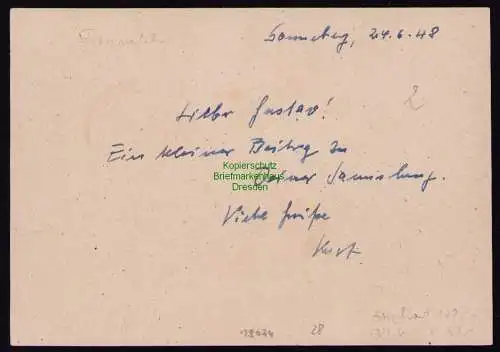 Sonneberg, 24.6.48
2
Lieber Gustav!
Ein kleiner Beitrag zu
Deiner Sammlung.
Viele Grüße
Kurt
Kopierschutz
Briefmarkenhaus
Dresden
28